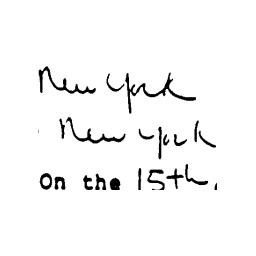 New York
New York
On the 15th,